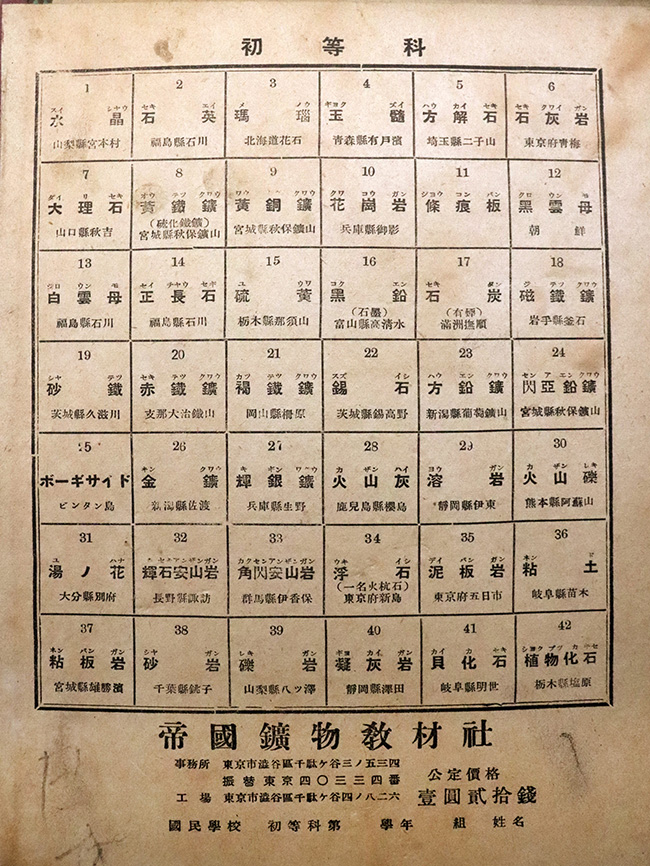 初等科
1
スイ シヤウ
水晶
山梨縣宮本村
2
セキ エイ
石英
福島縣石川
3
メ ノウ
瑪瑙
北海道花石
4
ギヨク ズイ
玉髓
青森縣有戸濱
5
ハウ カイ セキ
方解石
埼玉縣二子山
6
セキ クワイ ガン
石灰岩
東京府青梅
7
ダイ リ セキ
大理石
山口縣秋吉
8
オウ テツ クワウ
黄鐵鑛
(硫化鐵鑛)
宮城縣秋保鑛山
9
ワウ ドウ クワウ
黄銅鑛
宮城縣秋保鑛山
10
クワ コウ ガン
花崗岩
兵庫縣御影
11
ジヨウ コン バン
條痕板
12
クロ ウン モ
黑雲母
朝鮮
13
シロ ウン モ
白雲母
福島縣石川
14
セイ チヤウ セキ
正長石
福島縣石川
15
ユ ワウ
硫黄
栃木縣那須山
16
コク エン
黑鉛
(石墨)
富山縣高清水
17
セキ タン
石炭
(有煙)
滿洲撫順
18
ジ テツ クワウ
磁鐵鑛
岩手縣釜石
19
シヤ テツ
砂鐵
茨城縣久滋川
20
セキ テツ クワウ
赤鐵鑛
支那大冶鐵山
21
カツ テツ クワウ
褐鐵鑛
岡山縣柵原
22
スズ イシ
錫石
茨城縣錫高野
23
ハウ エン クワウ
方鉛鑛
新潟縣葡萄鑛山
24
セン ア エン クワウ
閃亞鉛鑛
宮城縣秋保鑛山
25
ボーキサイド
ビンタン島
26
キン クワウ
金鑛
新潟縣佐渡
27
キ ギン クワウ
輝銀鑛
兵庫縣生野
28
カ ザン ハイ
火山灰
鹿兒島縣櫻島
29
ヨウ ガン
溶岩
靜岡縣伊東
30
カ ザン レキ
火山礫
熊本縣阿蘇山
31
ユ ハナ
湯ノ花
大分縣別府
32
キセキアンザンガン
輝石安山岩
長野縣諏訪
33
カクセンアンザンガン
角閃安山岩
群馬縣伊香保
34
ウキ イシ
浮石
(一名火杭石)
東京府新島
35
デイ バン ガン
泥板岩
東京府五日市
36
ネン ド
粘土
岐阜縣苗木
37
ネン バン ガン
粘板岩
宮城縣雄勝濱
38
シヤ ガン
砂岩
千葉縣銚子
39
レキ ガン
礫岩
山梨縣八ツ澤
40
ギヨ カイ ガン
凝灰岩
靜岡縣澤田
41
カイ クワ セキ
貝化石
岐阜縣明世
42
シヨク ブツ クワ セキ
植物化石
栃木縣塩原
帝國鑛物教材社
事務所 東京市澁谷區千駄ケ谷三ノ五三四
振替東京四〇三三四番
工場 東京市澁谷區千駄ケ谷四ノ八二六
公定價格
壹圓貳拾錢
國民學校 初等科第 學年 組 姓名